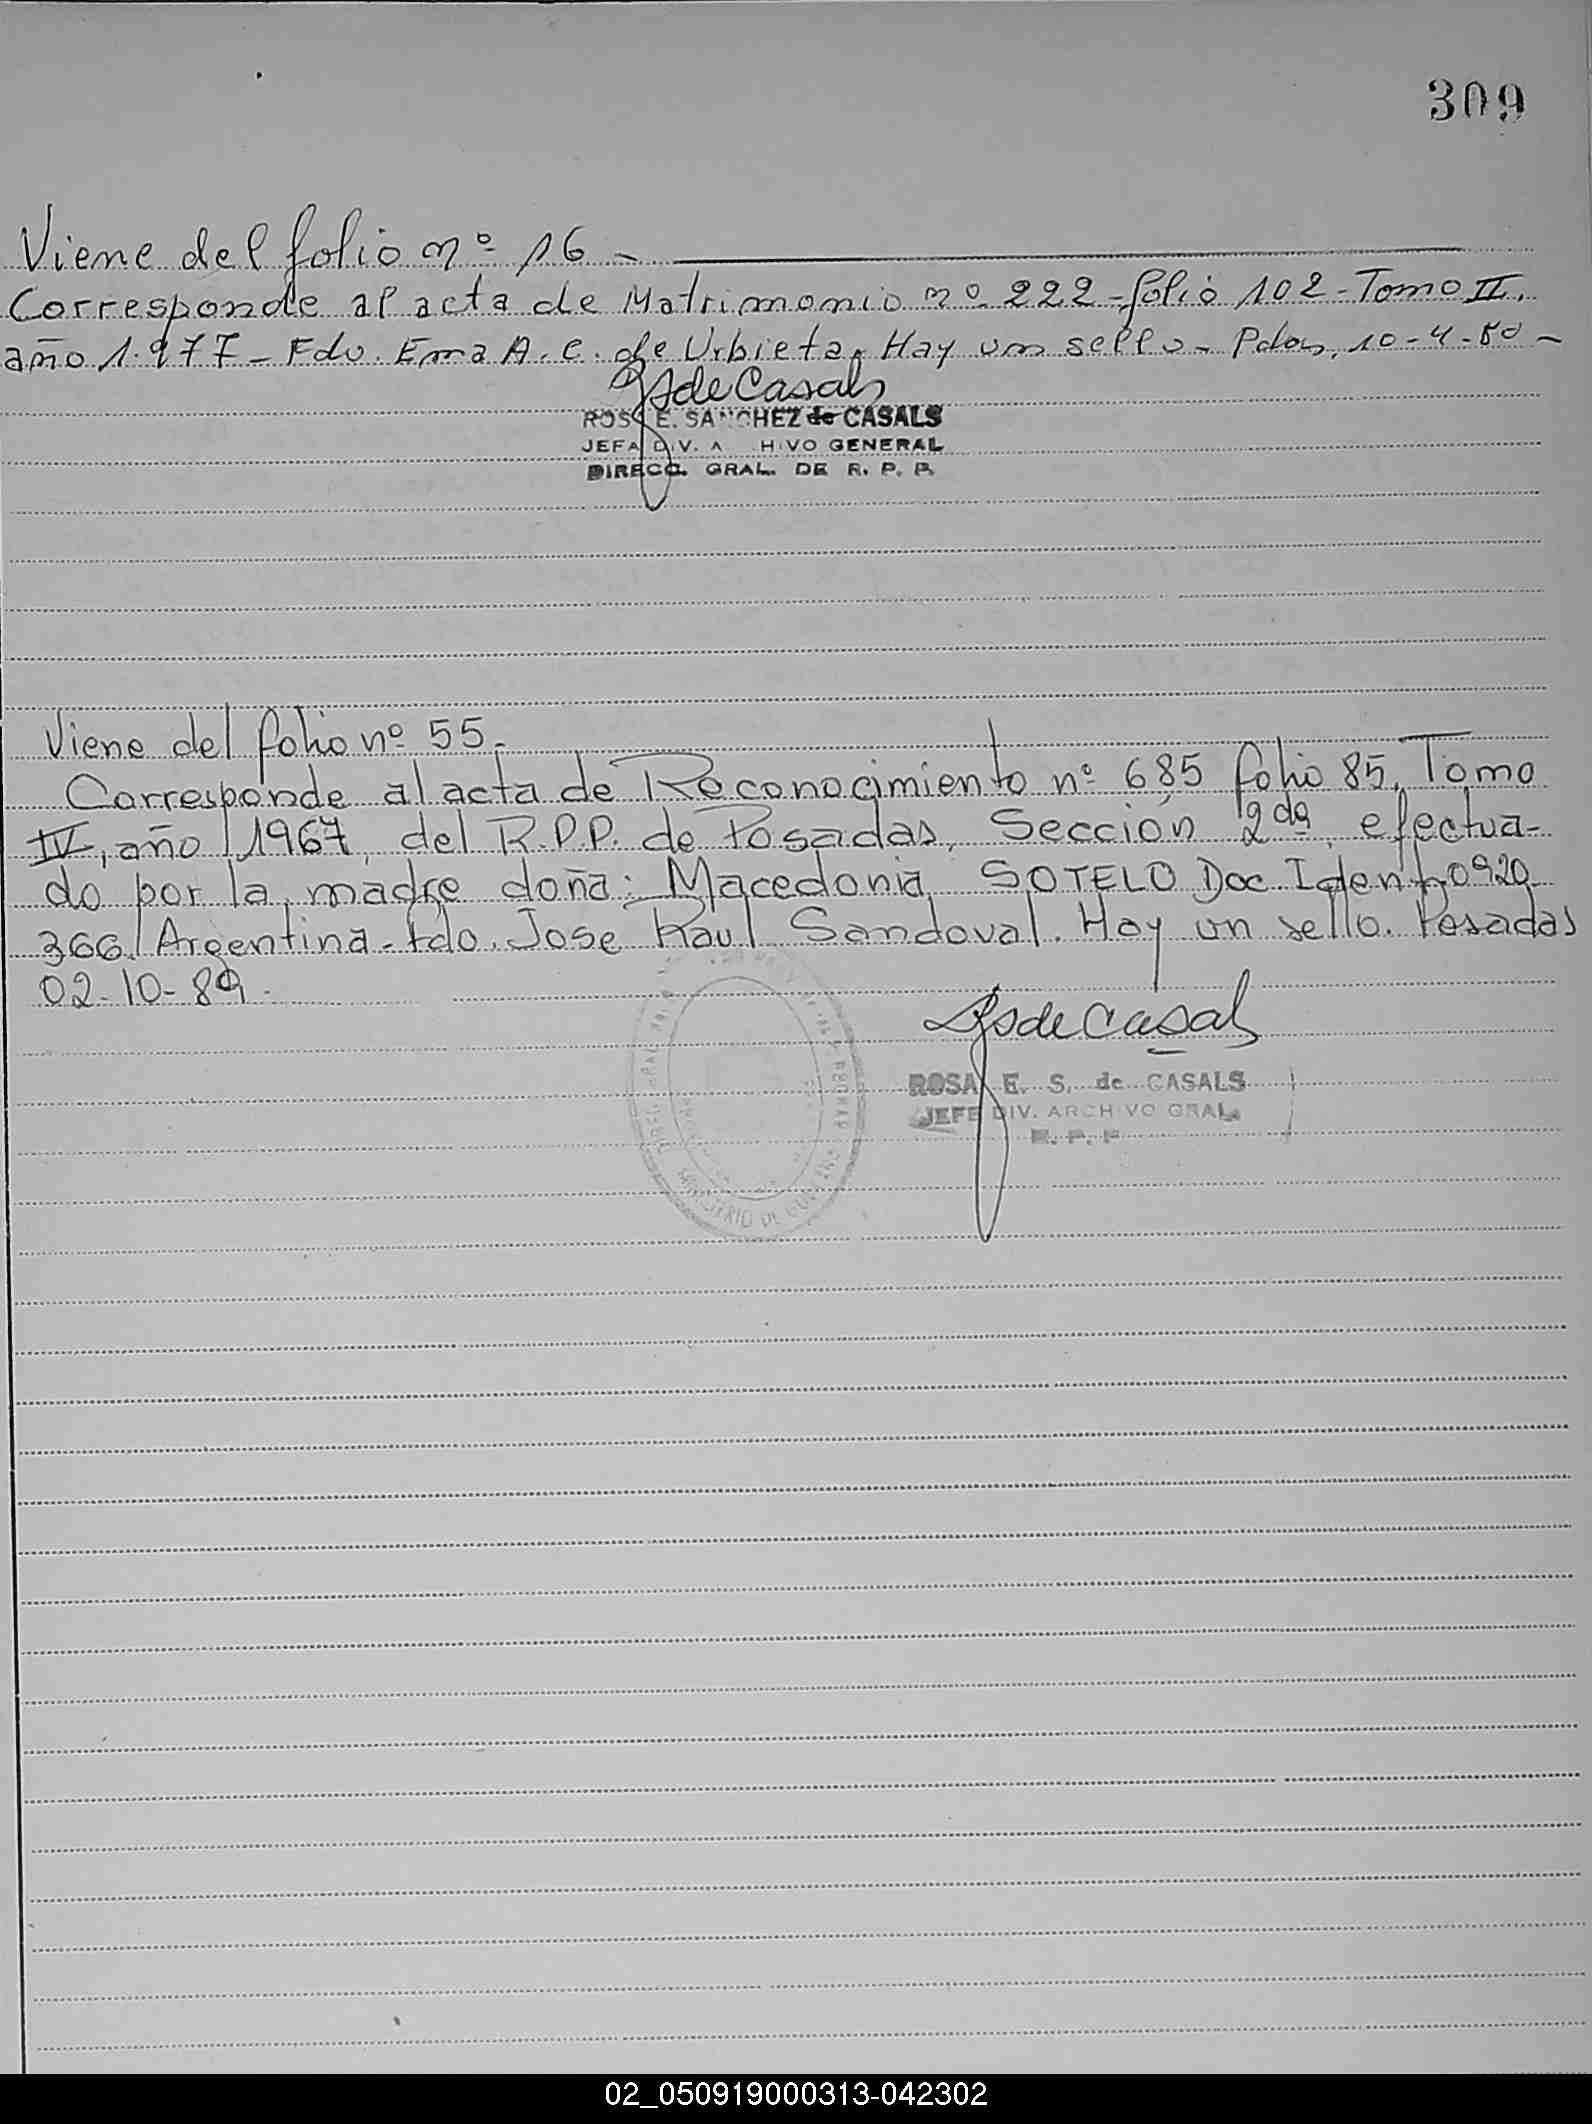 309
Viene del folio nº 16 -
Corresponde al acta de Matrimonio nº 222 - folio 102 - Tomo II,
año 1.977 - Fdo. Ema A. C. de Urbieta. Hay un sello - Pdas, 10-4-80 -
RSdeCasals
ROSA E. SANCHEZ de CASALS
JEFA DIV. ARCHIVO GENERAL
DIRECC. GRAL. DE R. P. P.
Viene del folio nº 55.-
Corresponde al acta de Reconocimiento nº 685 folio 85, Tomo
IV, año 1967, del R.P.P. de Posadas, Sección 2da, efectua-
do por la madre doña: Macedonia SOTELO Doc. Ident. 0920
366 Argentina - fdo. Jose Raul Sandoval. Hay un sello. Posadas
02-10-89.
RSdeCasals
ROSA E. S. de CASALS
JEFE DIV. ARCHIVO GRAL.
R. P. P.
MINISTERIO DE
02_050919000313-042302